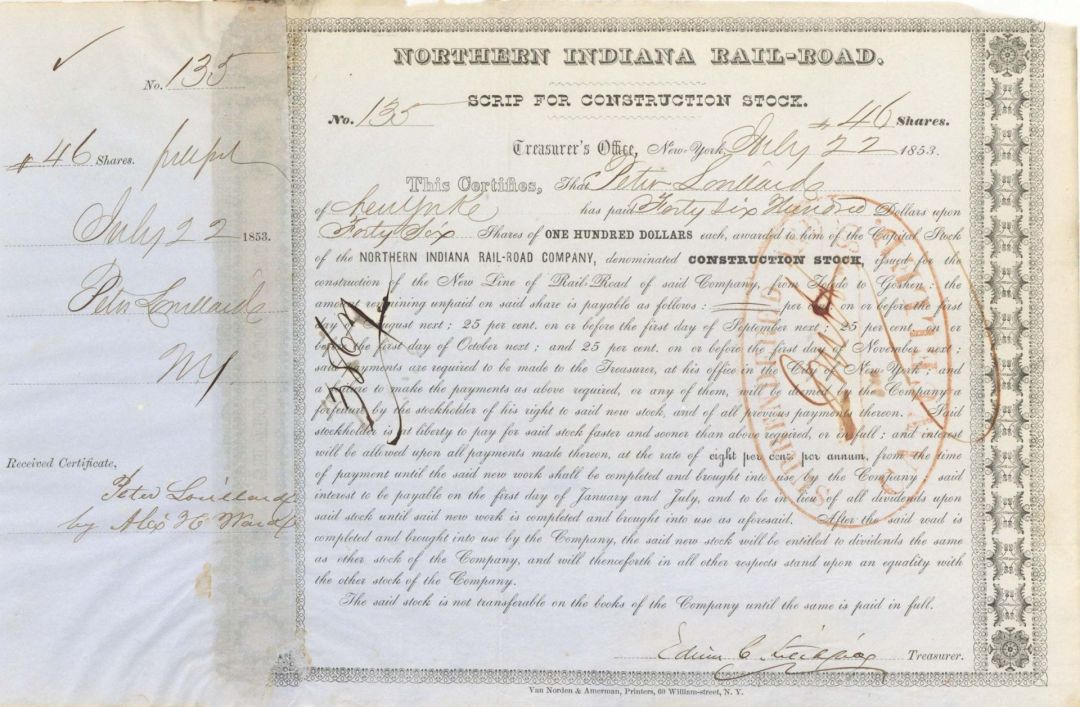 No. 135
$46 Shares. full paid
July 22 1853.
Peter Lorillard
NY
Received Certificate,
Peter Lorillard
by Alex H Ward
NORTHERN INDIANA RAIL-ROAD.
SCRIP FOR CONSTRUCTION STOCK.
No. 135 $46 Shares.
Treasurer's Office, New-York, July 22 1853.
This Certifies, That Peter Lorillard
of New York has paid Forty Six Hundred Dollars upon
Forty Six Shares of ONE HUNDRED DOLLARS each, awarded to him of the Capital Stock
of the NORTHERN INDIANA RAIL-ROAD COMPANY, denominated CONSTRUCTION STOCK, issued for the
construction of the New Line of Rail-Road of said Company, from Toledo to Goshen: the
amount remaining unpaid on said share is payable as follows: per cent. on or before the first
day of August next; 25 per cent. on or before the first day of September next; 25 per cent. on or
before the first day of October next; and 25 per cent. on or before the first day of November next;
said payments are required to be made to the Treasurer, at his office in the City of New York; and
a failure to make the payments as above required, or any of them, will be deemed by the Company a
forfeiture by the stockholder of his right to said new stock, and of all previous payments thereon. Said
stockholder is at liberty to pay for said stock faster and sooner than above required, or in full; and interest
will be allowed upon all payments made thereon, at the rate of eight per cent. per annum, from the time
of payment until the said new work shall be completed and brought into use by the Company; said
interest to be payable on the first day of January and July, and to be in lieu of all dividends upon
said stock until said new work is completed and brought into use as aforesaid. After the said road is
completed and brought into use by the Company, the said new stock will be entitled to dividends the same
as other stock of the Company, and will thenceforth in all other respects stand upon an equality with
the other stock of the Company.
The said stock is not transferable on the books of the Company until the same is paid in full.
3864
Edwin C. Litchfield Treasurer.
Van Norden & Amerman, Printers, 60 William-street, N. Y.